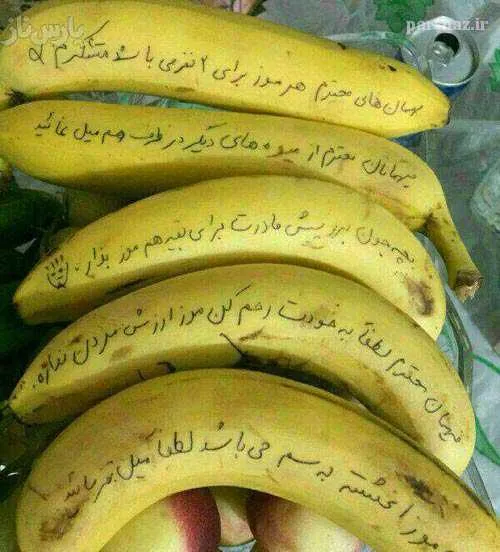 پارس ناز
parsnaz.ir
مهمان های محترم هر موز برای ۲ نفر می باشد متشکرم
میهمانان محترم از میوه های دیگر در ظرف هم میل نمائید
بچه جون برو پیش مادرت برای بقیه هم موز بذار
میهمان محترم لطفاً به خودت رحم کن موز ارزش مردن نداره.
موز آغشته به سم می باشد لطفا میل نفرمائید